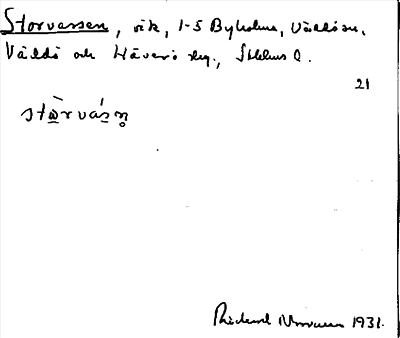 Storvassen, vik, 1-5 Byholma, Väddö sn,
Väddö och Häverö skg., Sthlms l.
21
stòrvásn̥
Rickard 1931.